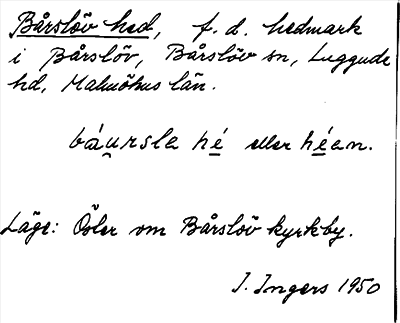 Bårslöv hed, f. d. hedmark
i Bårslöv, Bårslöv sn, Luggude
hd, Malmöhus län.
báu̯rsle hé̲ eller hé̲en.
Läge: Öster om Bårslöv kyrkby.
I. Ingers 1950